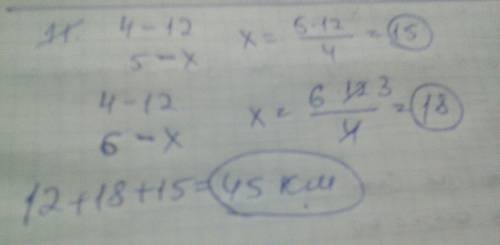 4 - 12 x = 5·12/4 = 15
5 - x
4 - 12 x = 6 12 3/4 = 18
6 - x
12 + 18 + 15 = 45 км